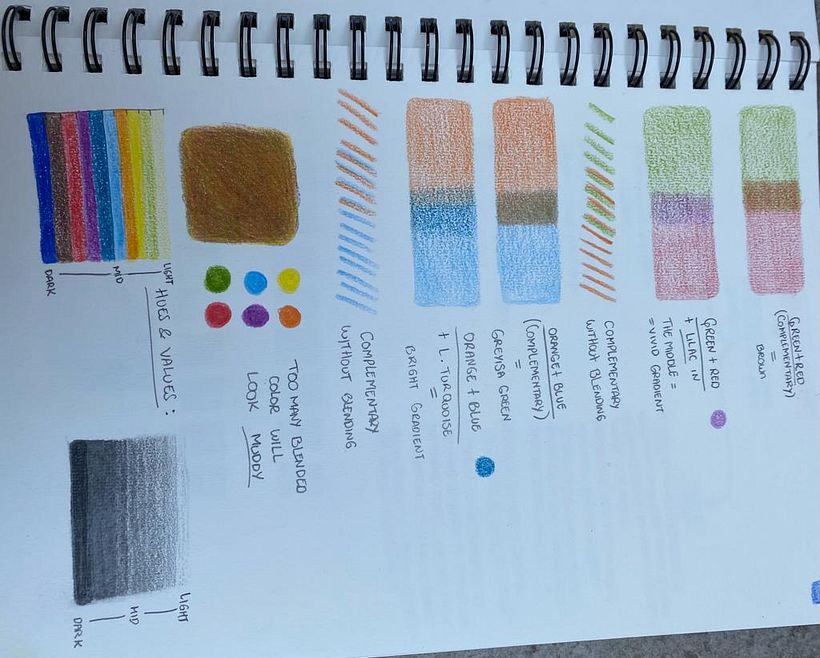 GREEN+RED
(COMPLEMENTARY)
=
BROWN
GREEN + RED
+ LILAC IN
THE MIDDLE =
= VIVID GRADIENT
COMPLEMENTARY
WITHOUT BLENDING
ORANGE+ BLUE
(COMPLEMENTARY)
=
GREYISA GREEN
ORANGE + BLUE
+ L. TURQUOISE
=
BRIGHT GRADIENT
COMPLEMENTARY
WITHOUT BLENDING
TOO MANY BLENDED
COLOR WILL
LOOK MUDDY
HUES & VALUES:
LIGHT
MID
DARK
LIGHT
MID
DARK